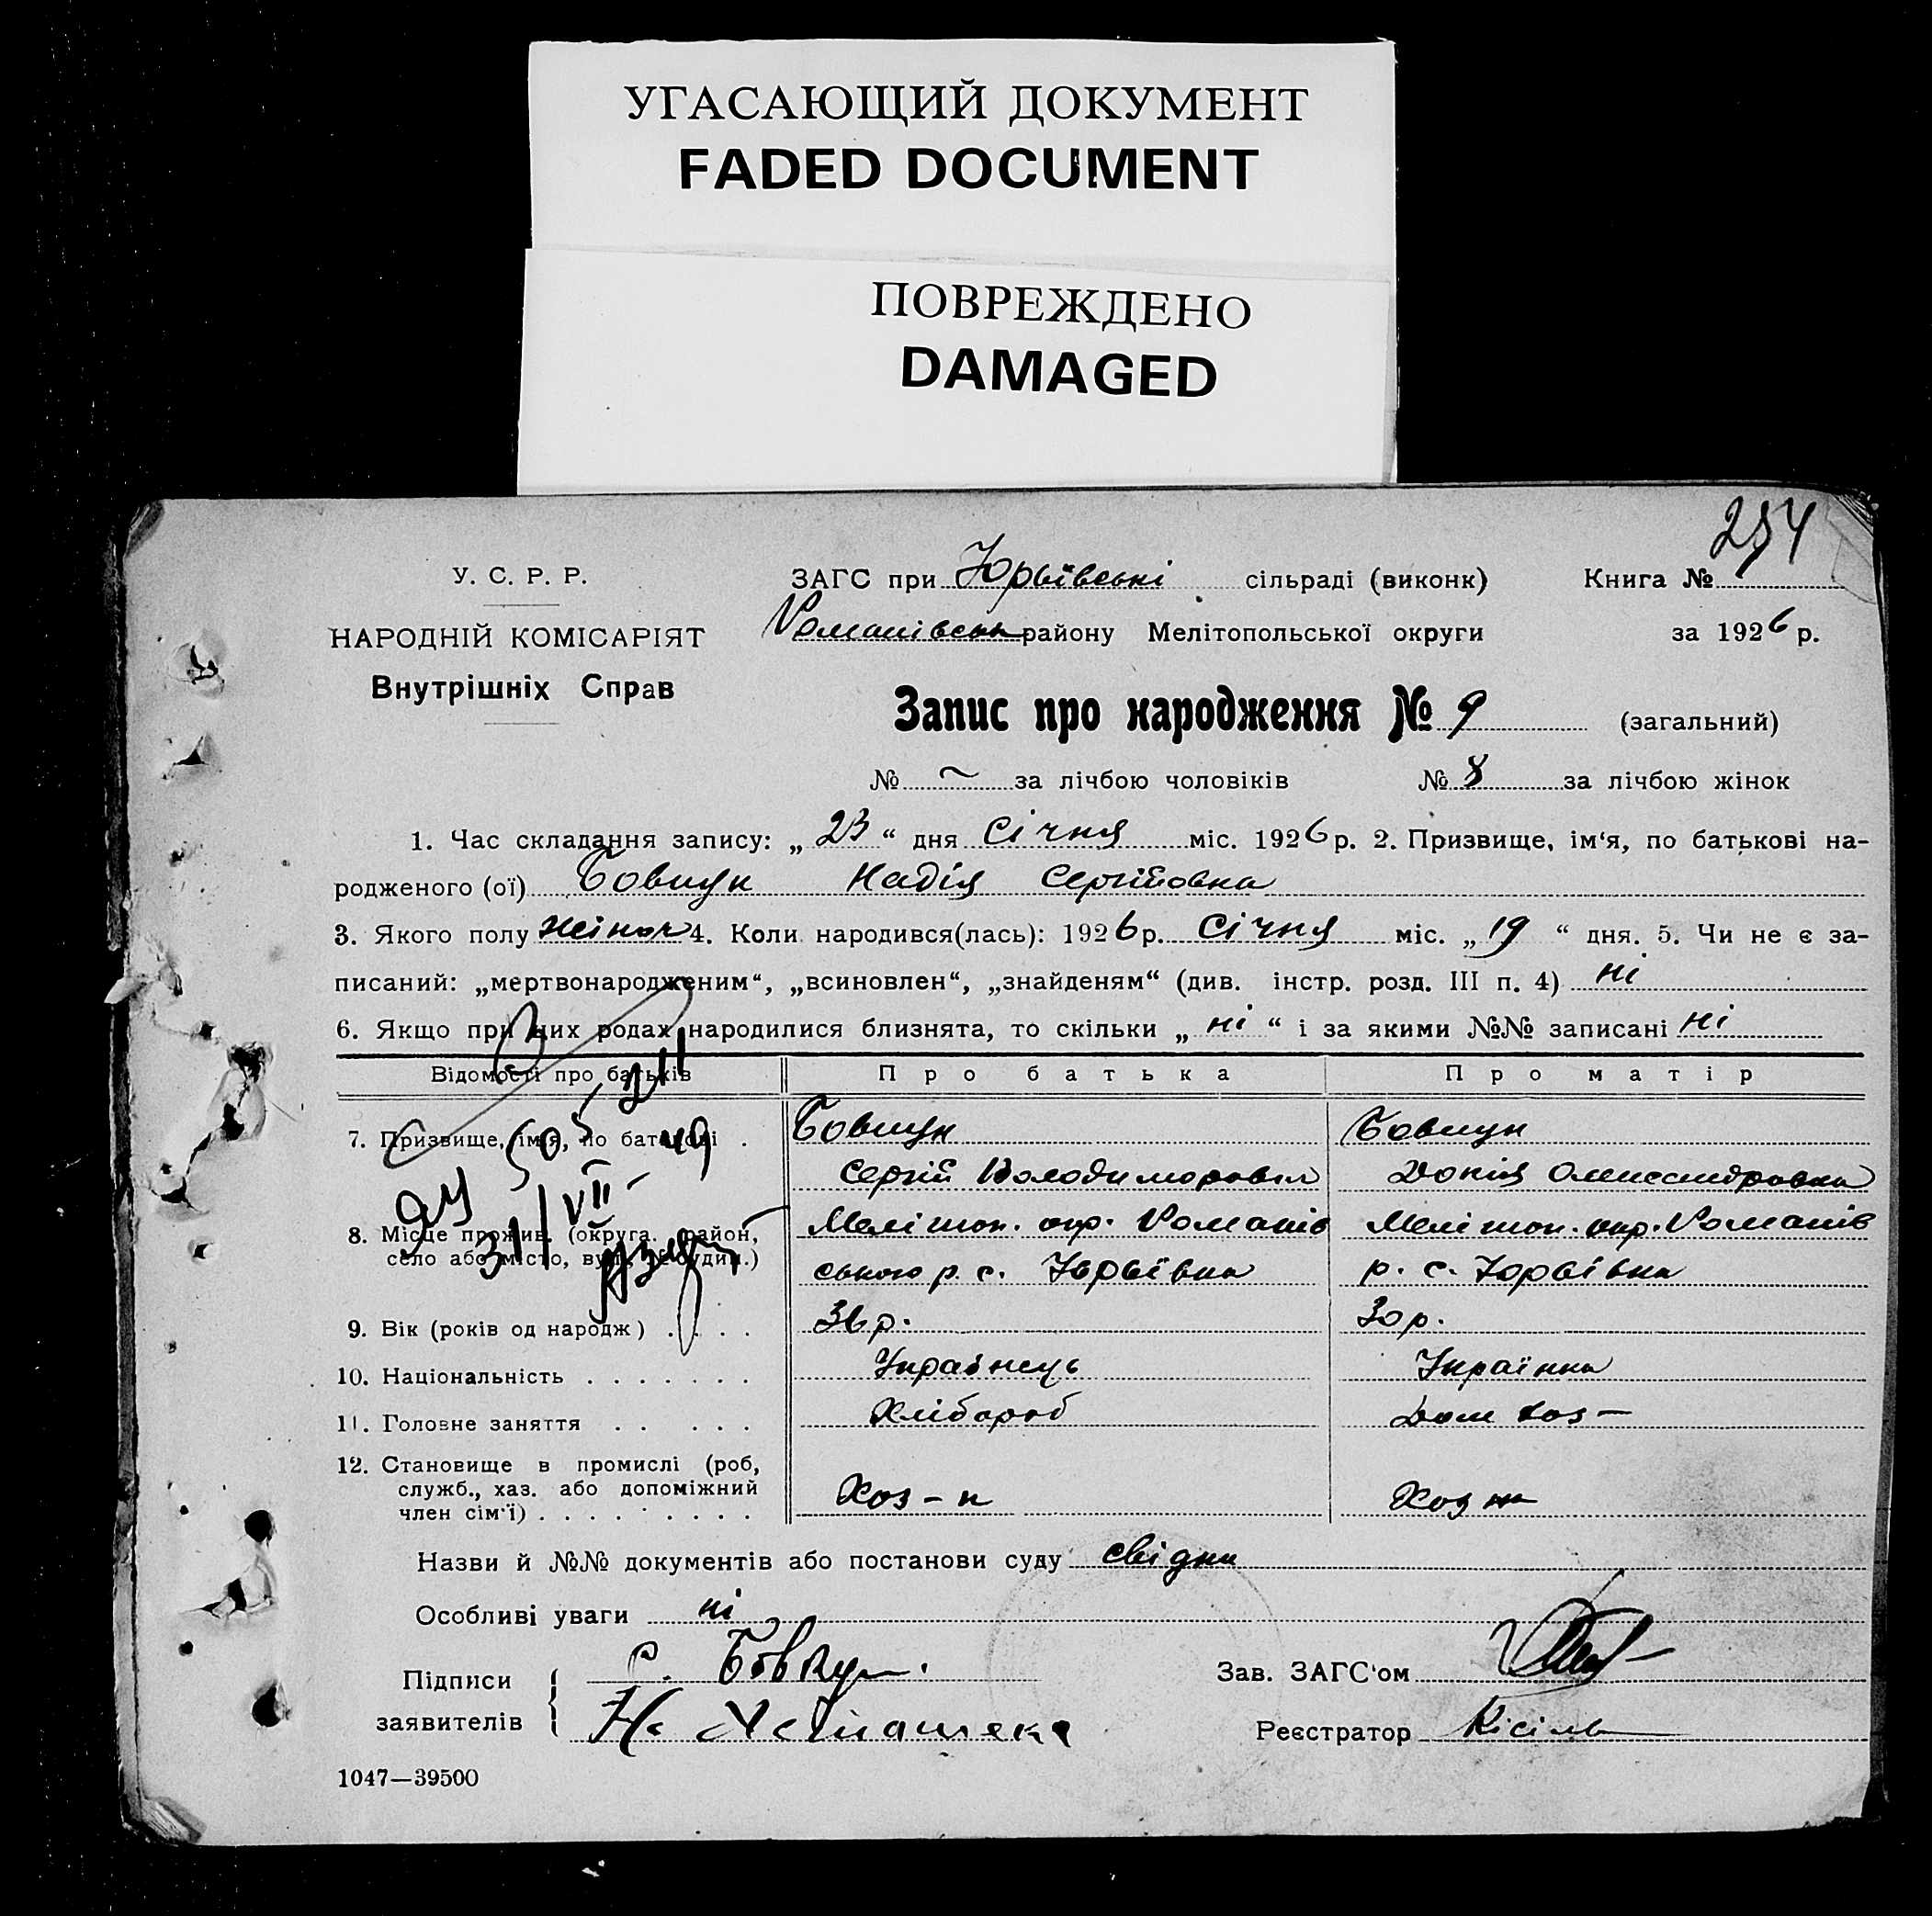 УГАСАЮЩИЙ ДОКУМЕНТ
FADED DOCUMENT
ПОВРЕЖДЕНО
DAMAGED
254
У. С. Р. Р.
НАРОДНІЙ КОМІСАРІЯТ
Внутрішніх Справ
ЗАГС при Юрьївські сільраді (виконк) Книга №
Романівськ району Мелітопольської округи за 1926 р.
Запис про народження № 9 (загальний)
№ ~ за лічбою чоловіків № 8 за лічбою жінок
1. Час складання запису: „ 23 “ дня Січня міс. 1926 р. 2. Призвище, ім‘я, по батькові на-
родженого (ої) Бовкун Надія Сергійовна
3. Якого полу жіноч 4. Коли народився(лась): 1926 р. Січня міс. „ 19 “ дня. 5. Чи не є за-
писаний: „мертвонародженим“, „всиновлен“, „знайденям“ (див. інстр. розд. III п. 4) ні
6. Якщо при цих родах народилися близнята, то скільки „ ні “ і за якими №№ записані ні
Відомості про батьків Про батька Про матір
7. Призвище, ім‘я, по батькові . Бовкун Бовкун
Сергій Володимировіч Докія Олександровна
8. Місце прожив. (округа. район, Меліт̶оп. окр. Романів Мелітоп. окр. Романів
село або місто, вул., № будин.) ського р. с. Юрьївка р. с. Юрьівка
9. Вік (років од народж) . . . . 36 р. 30 р.
10. Національність . . . . . . . Українець Українка
11. Головне заняття . . . . . Хлібороб Дом хоз –
12. Становище в промислі (роб,
служб., хаз. або допоміжний
член сім‘ї) . . . . . . . . . Хоз – н Хоз
31/VII-49
Назви й №№ документів або постанови суду свідки
Особливі уваги ні
Підписи С. Бовкун. Зав. ЗАГС‘ом
заявителів Реєстратор Кісіль
1047—39500